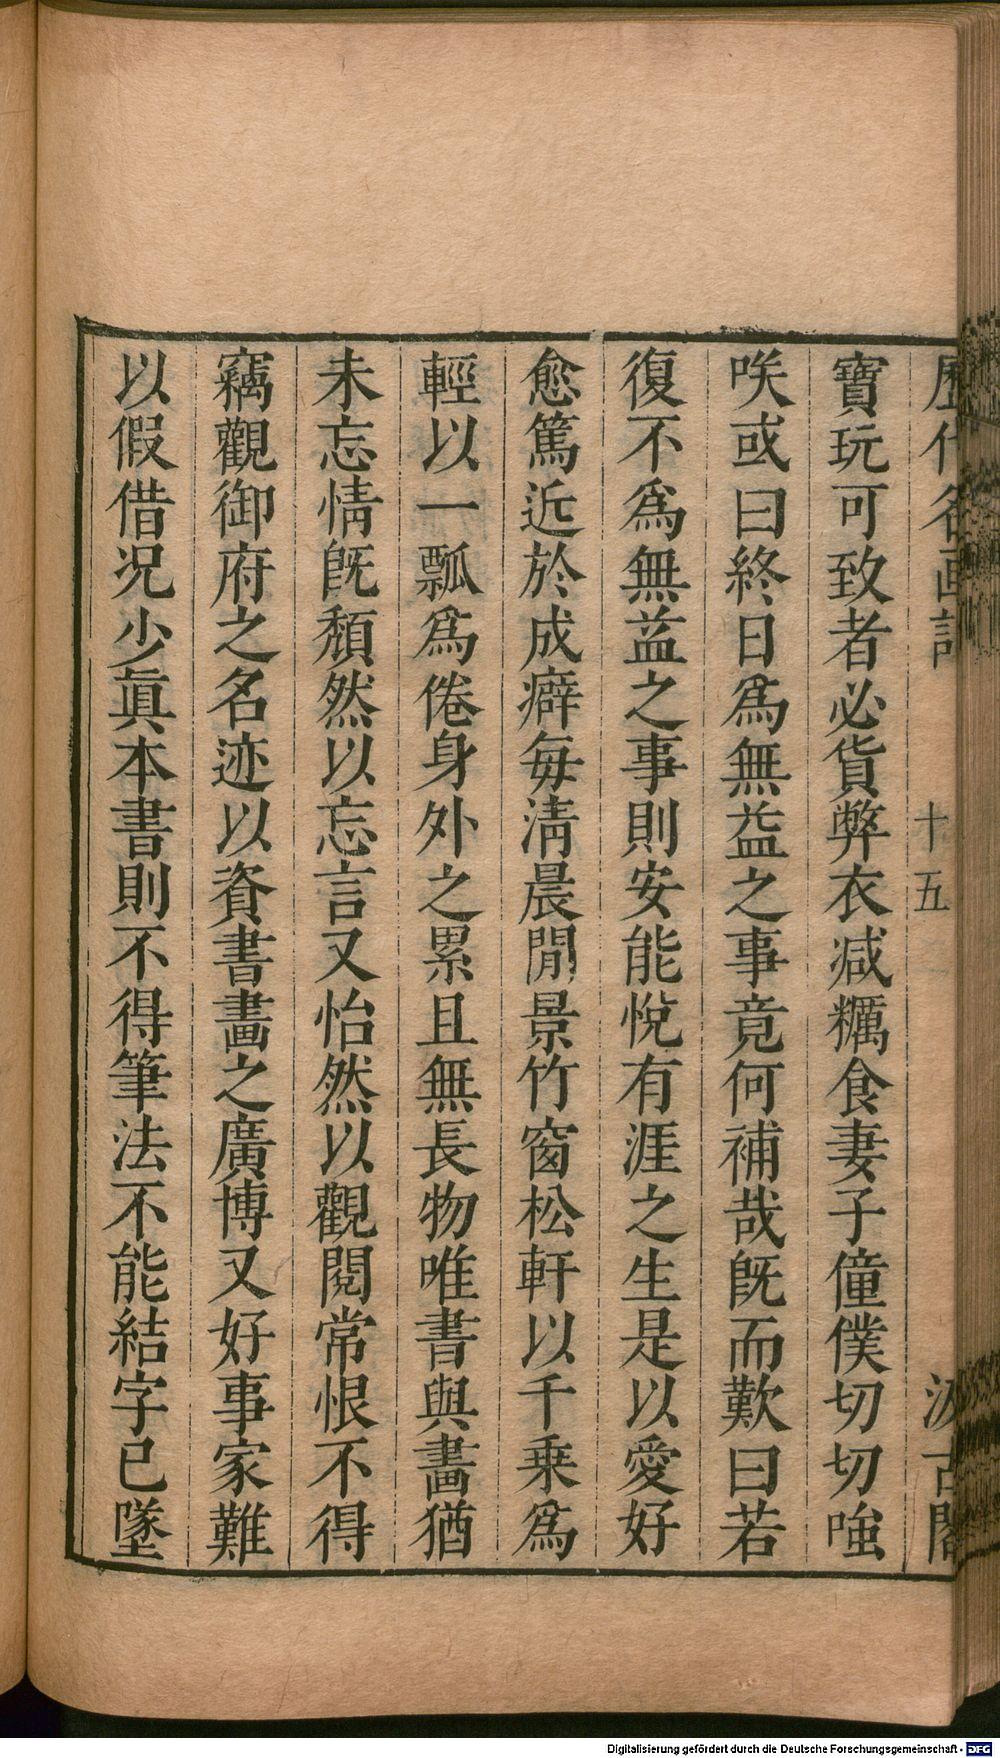 歷代名畫記 十五 汲古閣
寶玩可致者必貨弊衣减糲食妻子僮僕切切嗤
唉或曰終日爲無益之事竟何補哉旣而歎曰若
復不爲無益之事則安能悅有涯之生是以愛好
愈篤近於成癖每淸晨閒景竹窗松軒以千乗爲
輕以一瓢爲倦身外之累且無長物唯書與畫猶
未忘情旣頹然以忘言又怡然以觀閱常恨不得
竊觀御府之名迹以資書畫之廣博又好事家難
以假借况少眞本書則不得筆法不能結字已墜
Digitalisierung gefördert durch die Deutsche Forschungsgemeinschaft - DFG